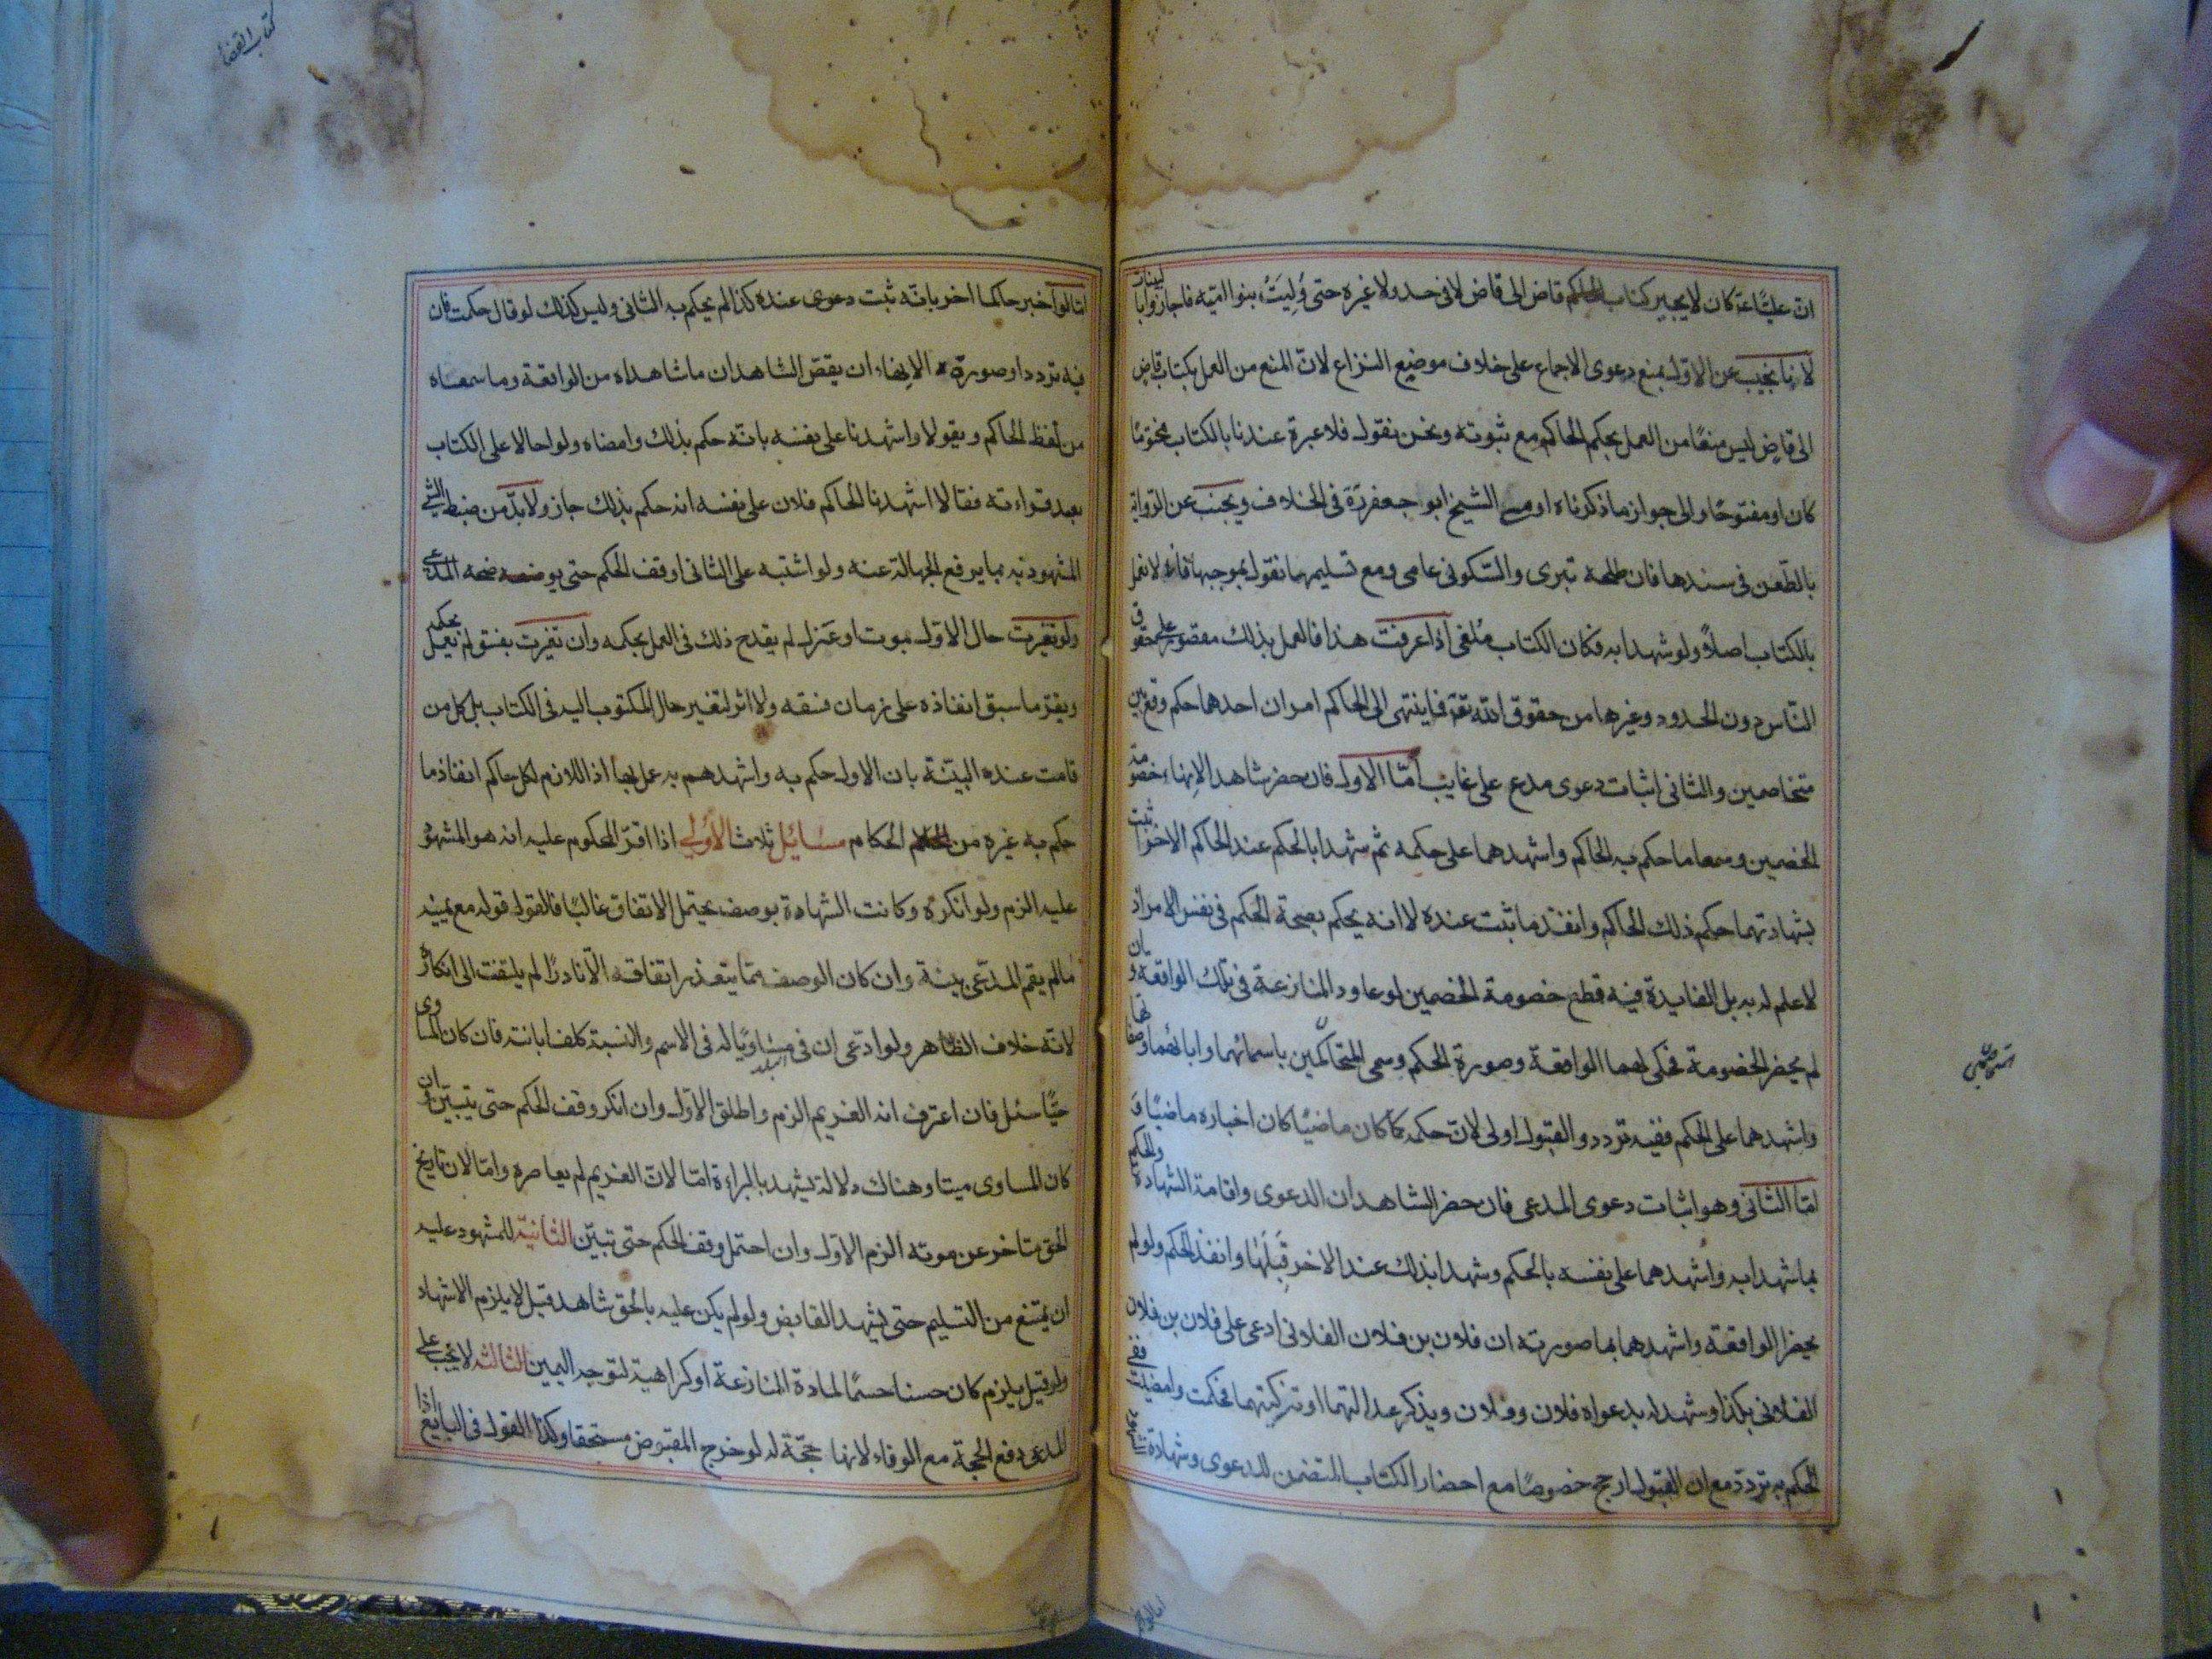 ان عليا عه كان لا يجيز كتاب قاض الى قاض لا في حد ولا غيره حتى وليت بنوا امية فاجازوا بالبينات
لانا نجيب عن الاول بمنع دعوى الاجماع على خلاف موضع النزاع لان المنع من العمل بكتاب قاض
الى قاض ليس منعا من العمل بحكم الحاكم مع ثبوته ونحن نقول فلا عبرة عندنا بالكتاب مختوما
كان او مفتوحا والى جواز ما ذكرناه اومى الشيخ ابو جعفر ره في الخلاف ونجيب عن الرواية
بالطعن في سندها فان طلحة تبرى والسكونى عامى ومع تسليمها نقول بموجبها فانه لا نعمل
بالكتاب اصلا ولو شهد به فكان الكتاب ملغى اذا عرفت هذا فالعمل بذلك مقصور على حقوق
الناس دون الحدود وغيرها من حقوق الله تعه فما ينتهى الى الحاكم امران احدهما حكم وقع بين
متخاصمين والثانى اثبات دعوى مدع على غايب اما الاول فان حضر شاهد الانهاء خصومة
الخصمين وسمعا ما حكم به الحاكم واشهدهما على حكمه ثم شهدا بالحكم عند الحاكم الاخر ثبت
بشهادتهما حكم ذلك الحاكم وانفذ ما ثبت عنده لا انه يحكم بصحة الحكم في نفس الامر اذ
لا علم له به بل الفايدة فيه قطع خصومة الخصمين لو عاود المنازعة في تلك الواقعة وان
لم يحضر الخصومة فحكى لهما الواقعة وصورة الحكم وسمى المتحاكمين باسمائهما وابائهما وصفاتهما
واشهدهما على الحكم ففيه تردد والقبول اولى لان حكمه كما كان ماضيا كان اخباره ماضيا
اما الثانى وهو اثبات دعوى المدعى فان حضر الشاهدان الدعوى واقامة الشهادة والحكم
بما شهدا به واشهدهما على نفسه بالحكم وشهدا بذلك عند الاخر قبلها وانفذ الحكم ولو لم
يحضرا الواقعة واشهدهما بما صورته ان فلان بن فلان الفلانى ادعى على فلان بن فلان
الفلانى بكذا وشهد له بدعواه فلان وفلان ويذكر عدالتهما او تزكيتهما فحكمت وامضيت ففى
الحكم به تردد مع ان القبول ارجح خصوصا مع احضار الكتاب المتضمن للدعوى وشهادة الشهود
كتاب القضا
اما لو اخبر حاكما اخر بانه ثبت دعوى عنده كذا لم يحكم به الثانى وليس كذلك لو قال حكمت فان
فيه تردد او صورة الانهاء ان يقص الشاهدان ما شاهداه من الواقعة وما سمعاه
من لفظ الحاكم ويقولا واشهدنا على نفسه بانه حكم بذلك وامضاه ولو احالا على الكتاب
بعد قراءته فقالا اشهدنا الحاكم فلان على نفسه انه حكم بذلك جاز ولابد من ضبط الشئ
المشهود به بما يرفع الجهالة عنه ولو اشتبه على الثانى اوقف الحكم حتى يوضحه المدعى
ولو تغيرت حال الاول بموت او عزل لم يقدح ذلك في العمل بحكمه وان تغيرت بفسق لم يعمل بحكمه
ويقر ما سبق انفاذه على زمان فسقه ولا اثر لتغير حال المكتوب اليه في الكتاب بل كل من
قامت عنده البينة بان الاول حكم به واشهدهم به عمل بها اذ اللازم لكل حاكم انفاذ ما
حكم به غيره من الحكام مسائل ثلاث الاولى اذا اقر المحكوم عليه انه هو المشهود
عليه الزم ولو انكره وكانت الشهادة بوصف يحتمل الاتفاق غالبا فالقول قوله مع يمينه
ما لم يقم المدعى بينة وان كان الوصف مما يتعذر اتفاقه الا نادرا لم يلتفت الى انكاره
لانه خلاف الظاهر ولو ادعى ان في البلد مساويا له في الاسم والنسبة كلف ابانته فان كان المساوى
حيا سئل فان اعترف انه الغريم الزم واطلق الاول وان انكر وقف الحكم حتى يتبين وان
كان المساوى ميتا وهناك دلالة تشهد بالبراءة اما لان الغريم لم يعاصره واما لان تاريخ
الحق متاخر عن موته الزم الاول وان احتمل وقف الحكم حتى تبين الثانية للمشهود عليه
ان يمتنع من التسليم حتى يشهد القابض ولو لم يكن عليه بالحق شاهد قيل لا يلزم الاشهاد
ولو قيل يلزم كان حسنا حسما لمادة المنازعة او كراهية لتوجه اليمين الثالثة لا يجب على
المدعى دفع الحجة مع الوفاء لانها حجة له لو خرج المقبوض مستحقا وكذا القول في البايع اذا